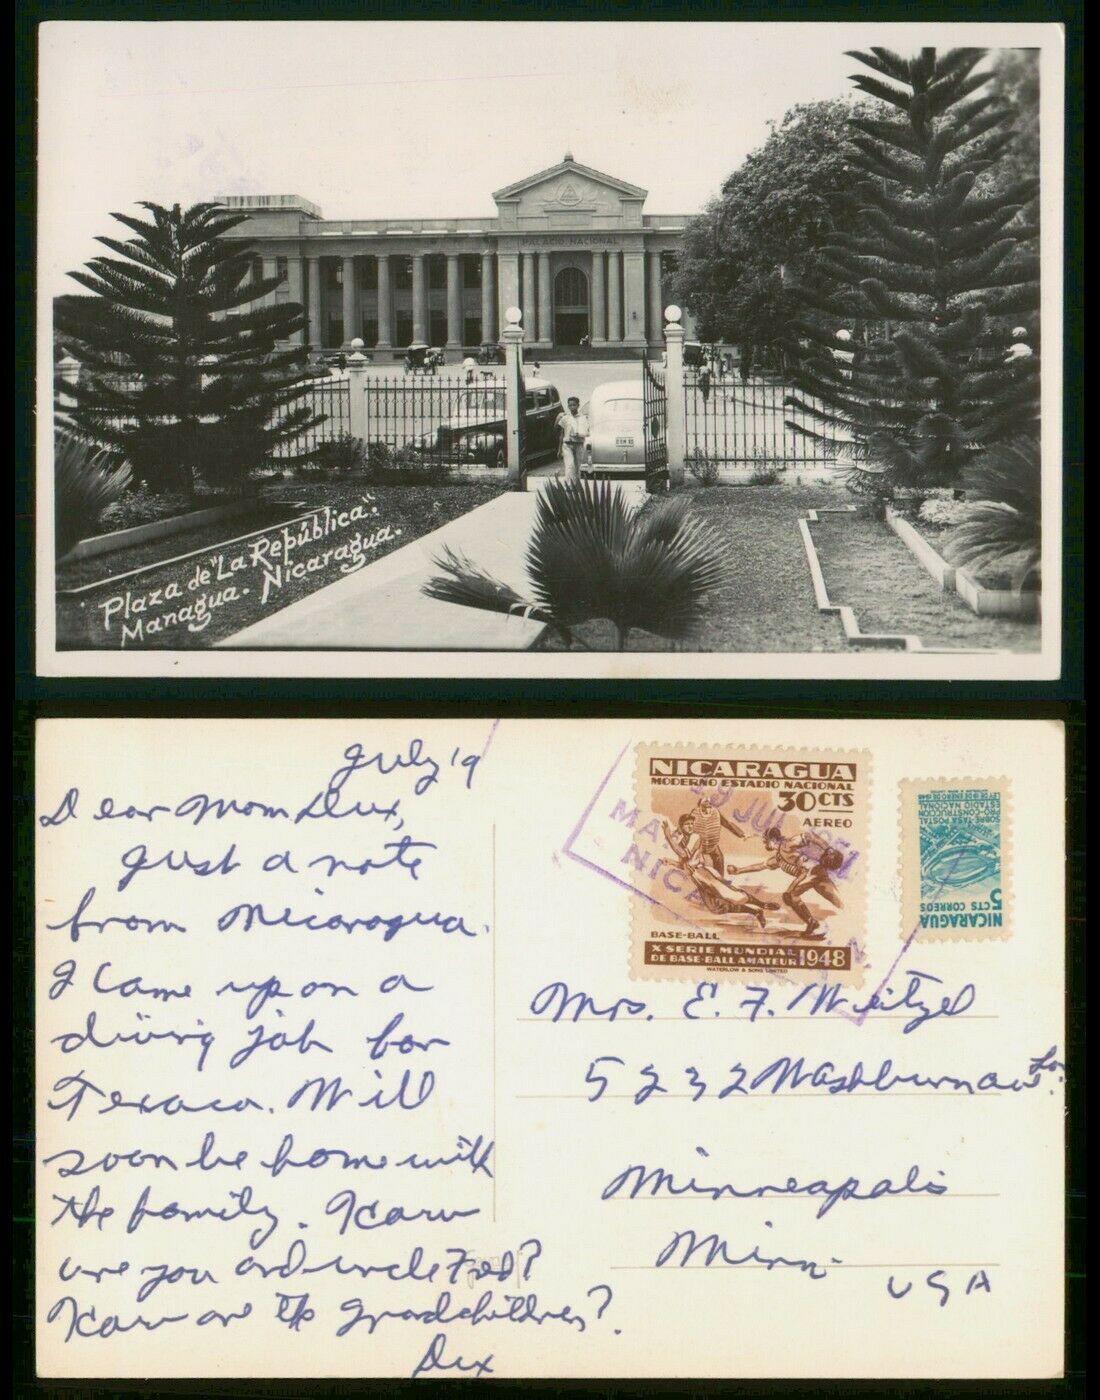 PALACIO NACIONAL
Plaza de "La República".
Managua. Nicaragua.
July 19
Dear Mom Dux,
Just a note
from Nicaragua.
I came up on a
diving job for
Texaco. Will
soon be home with
the family. How
are you and uncle Fred?
How are the grandchildren?
Dux
NICARAGUA
MODERNO ESTADIO NACIONAL
30 CTS
AEREO
BASE-BALL
X SERIE MUNDIAL
DE BASE-BALL AMATEUR 1948
WATERLOW & SONS LIMITED
19 JUL 1951
SOBRE TASA POSTAL
PRO-CONSTRUCCION
ESTADIO NACIONAL
5
CTS CORREOS
NICARAGUA
Mrs. E. F. Weitzel
5232 Washburn Ave So.
Minneapolis
Minn.
USA